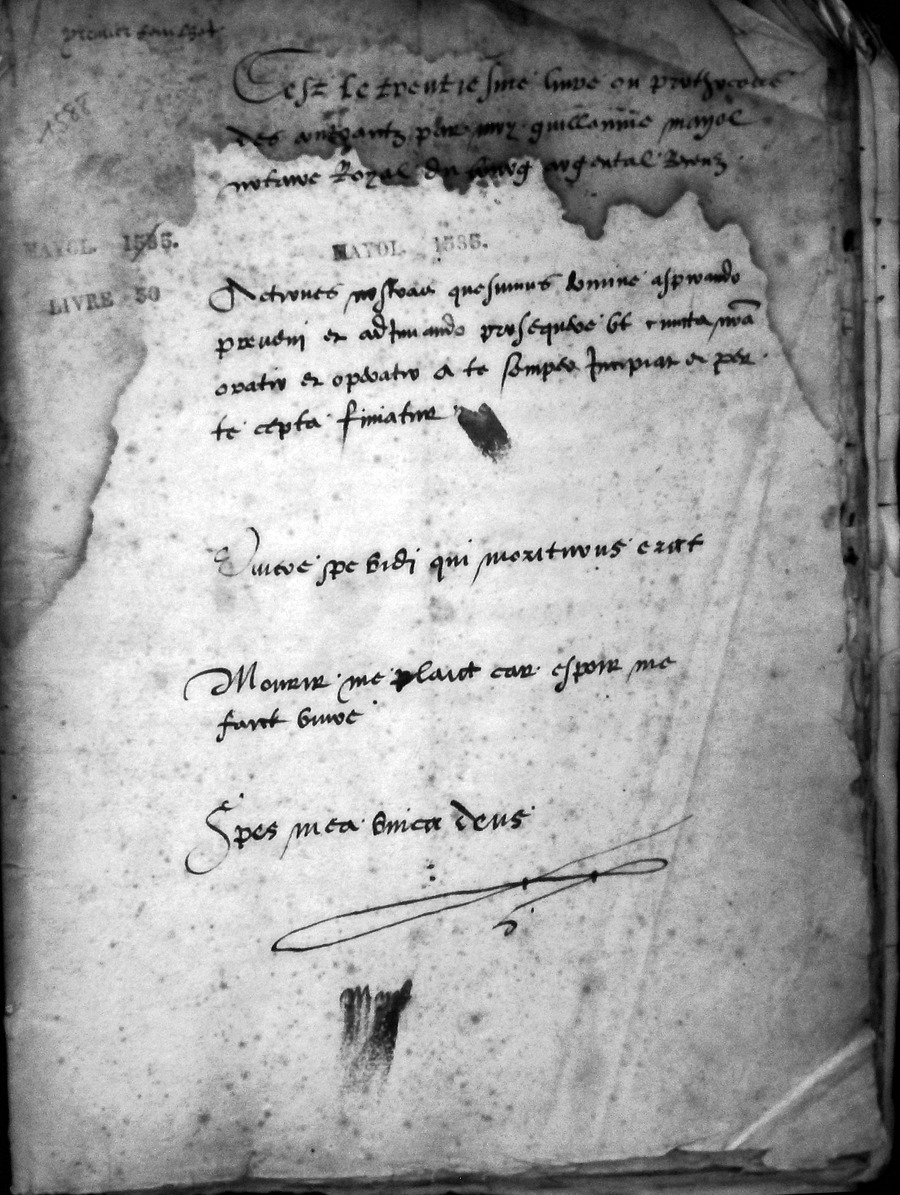 premier
1588
C'est le trentiesme livre ou prothocolle
des par moy guillaume mayol
notaire Royal du bourg argental
MAYOL 1585.
MAYOL 1585.
LIVRE 30
Actiones nostras quesumus domine aspirando
preveni et adjuvando prosequere ut cuncta nrã
oratio et operatio a te semper Incipiat et per
te cepta finiatur
Vivere spe vidi qui moriturus erat
Mourir me plaict car espoir me
faict vivre
Spes mea unica deus